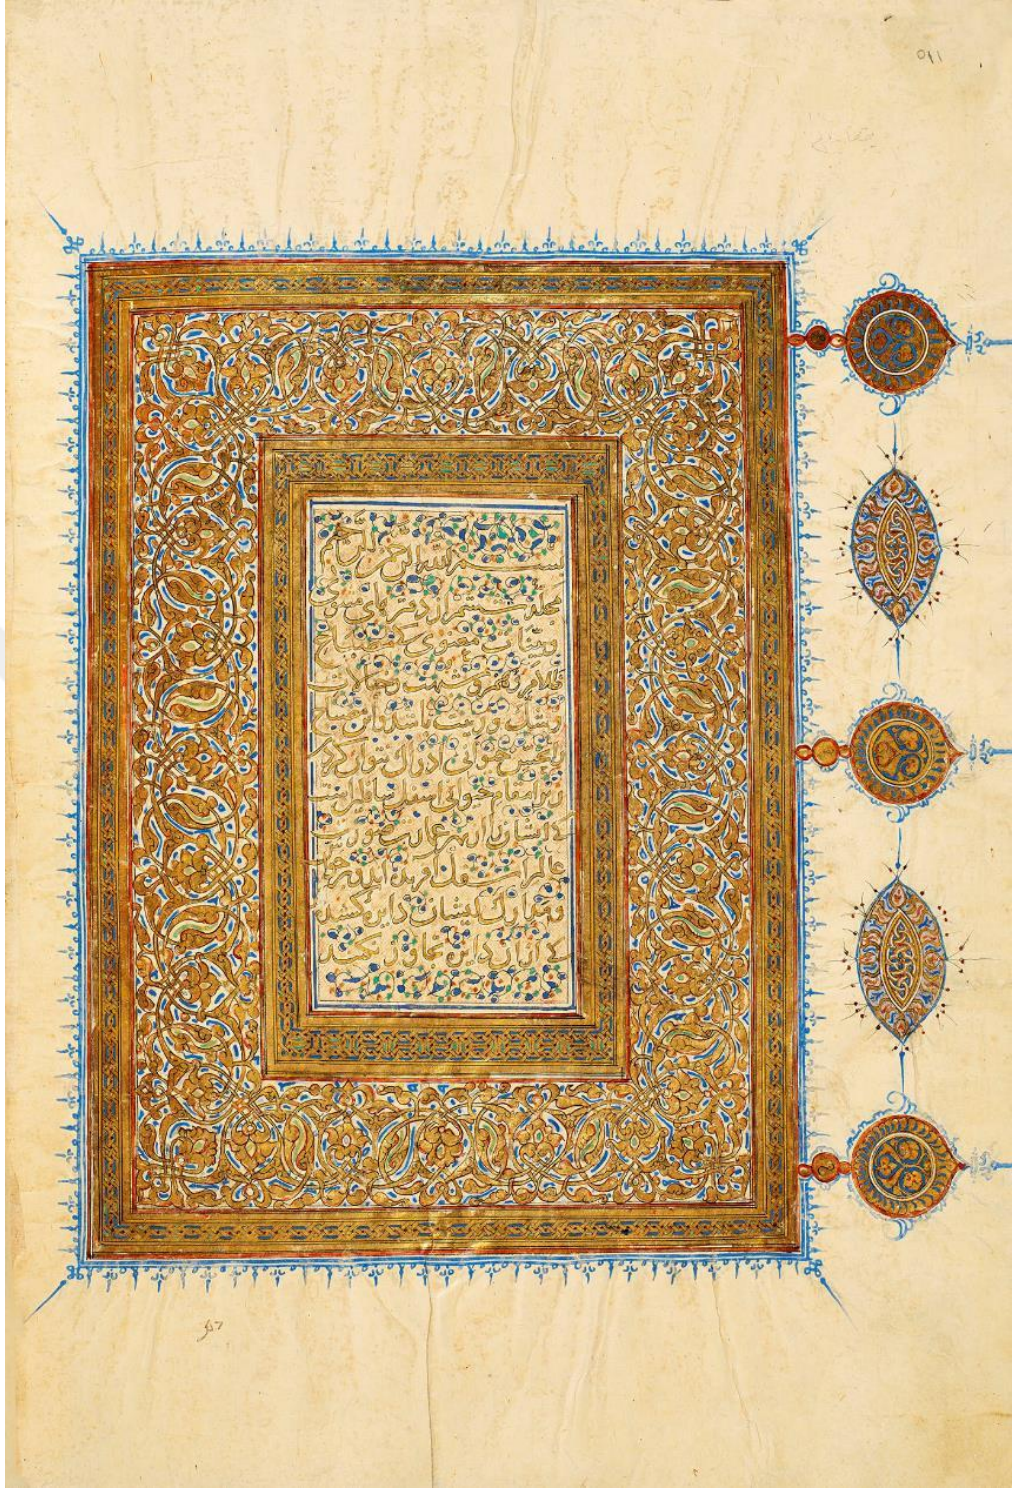 بسم الله الرحمن الرحیم
مجلد ششم از دفترهای مثنوی
و بینات معنوی که مصباح
ظلام وهم و شبهت و خیالات
و شک و ریبت باشد و این مصباح
را بحس حیوانی ادراک نتوان کرد
زیرا مقام حیوانی اسفل سافلین است
که ایشان را از بهر عمارت صورت
عالم اسفل
و مدارک ایشان دایره
که از آن دایره تجاوز نکنند